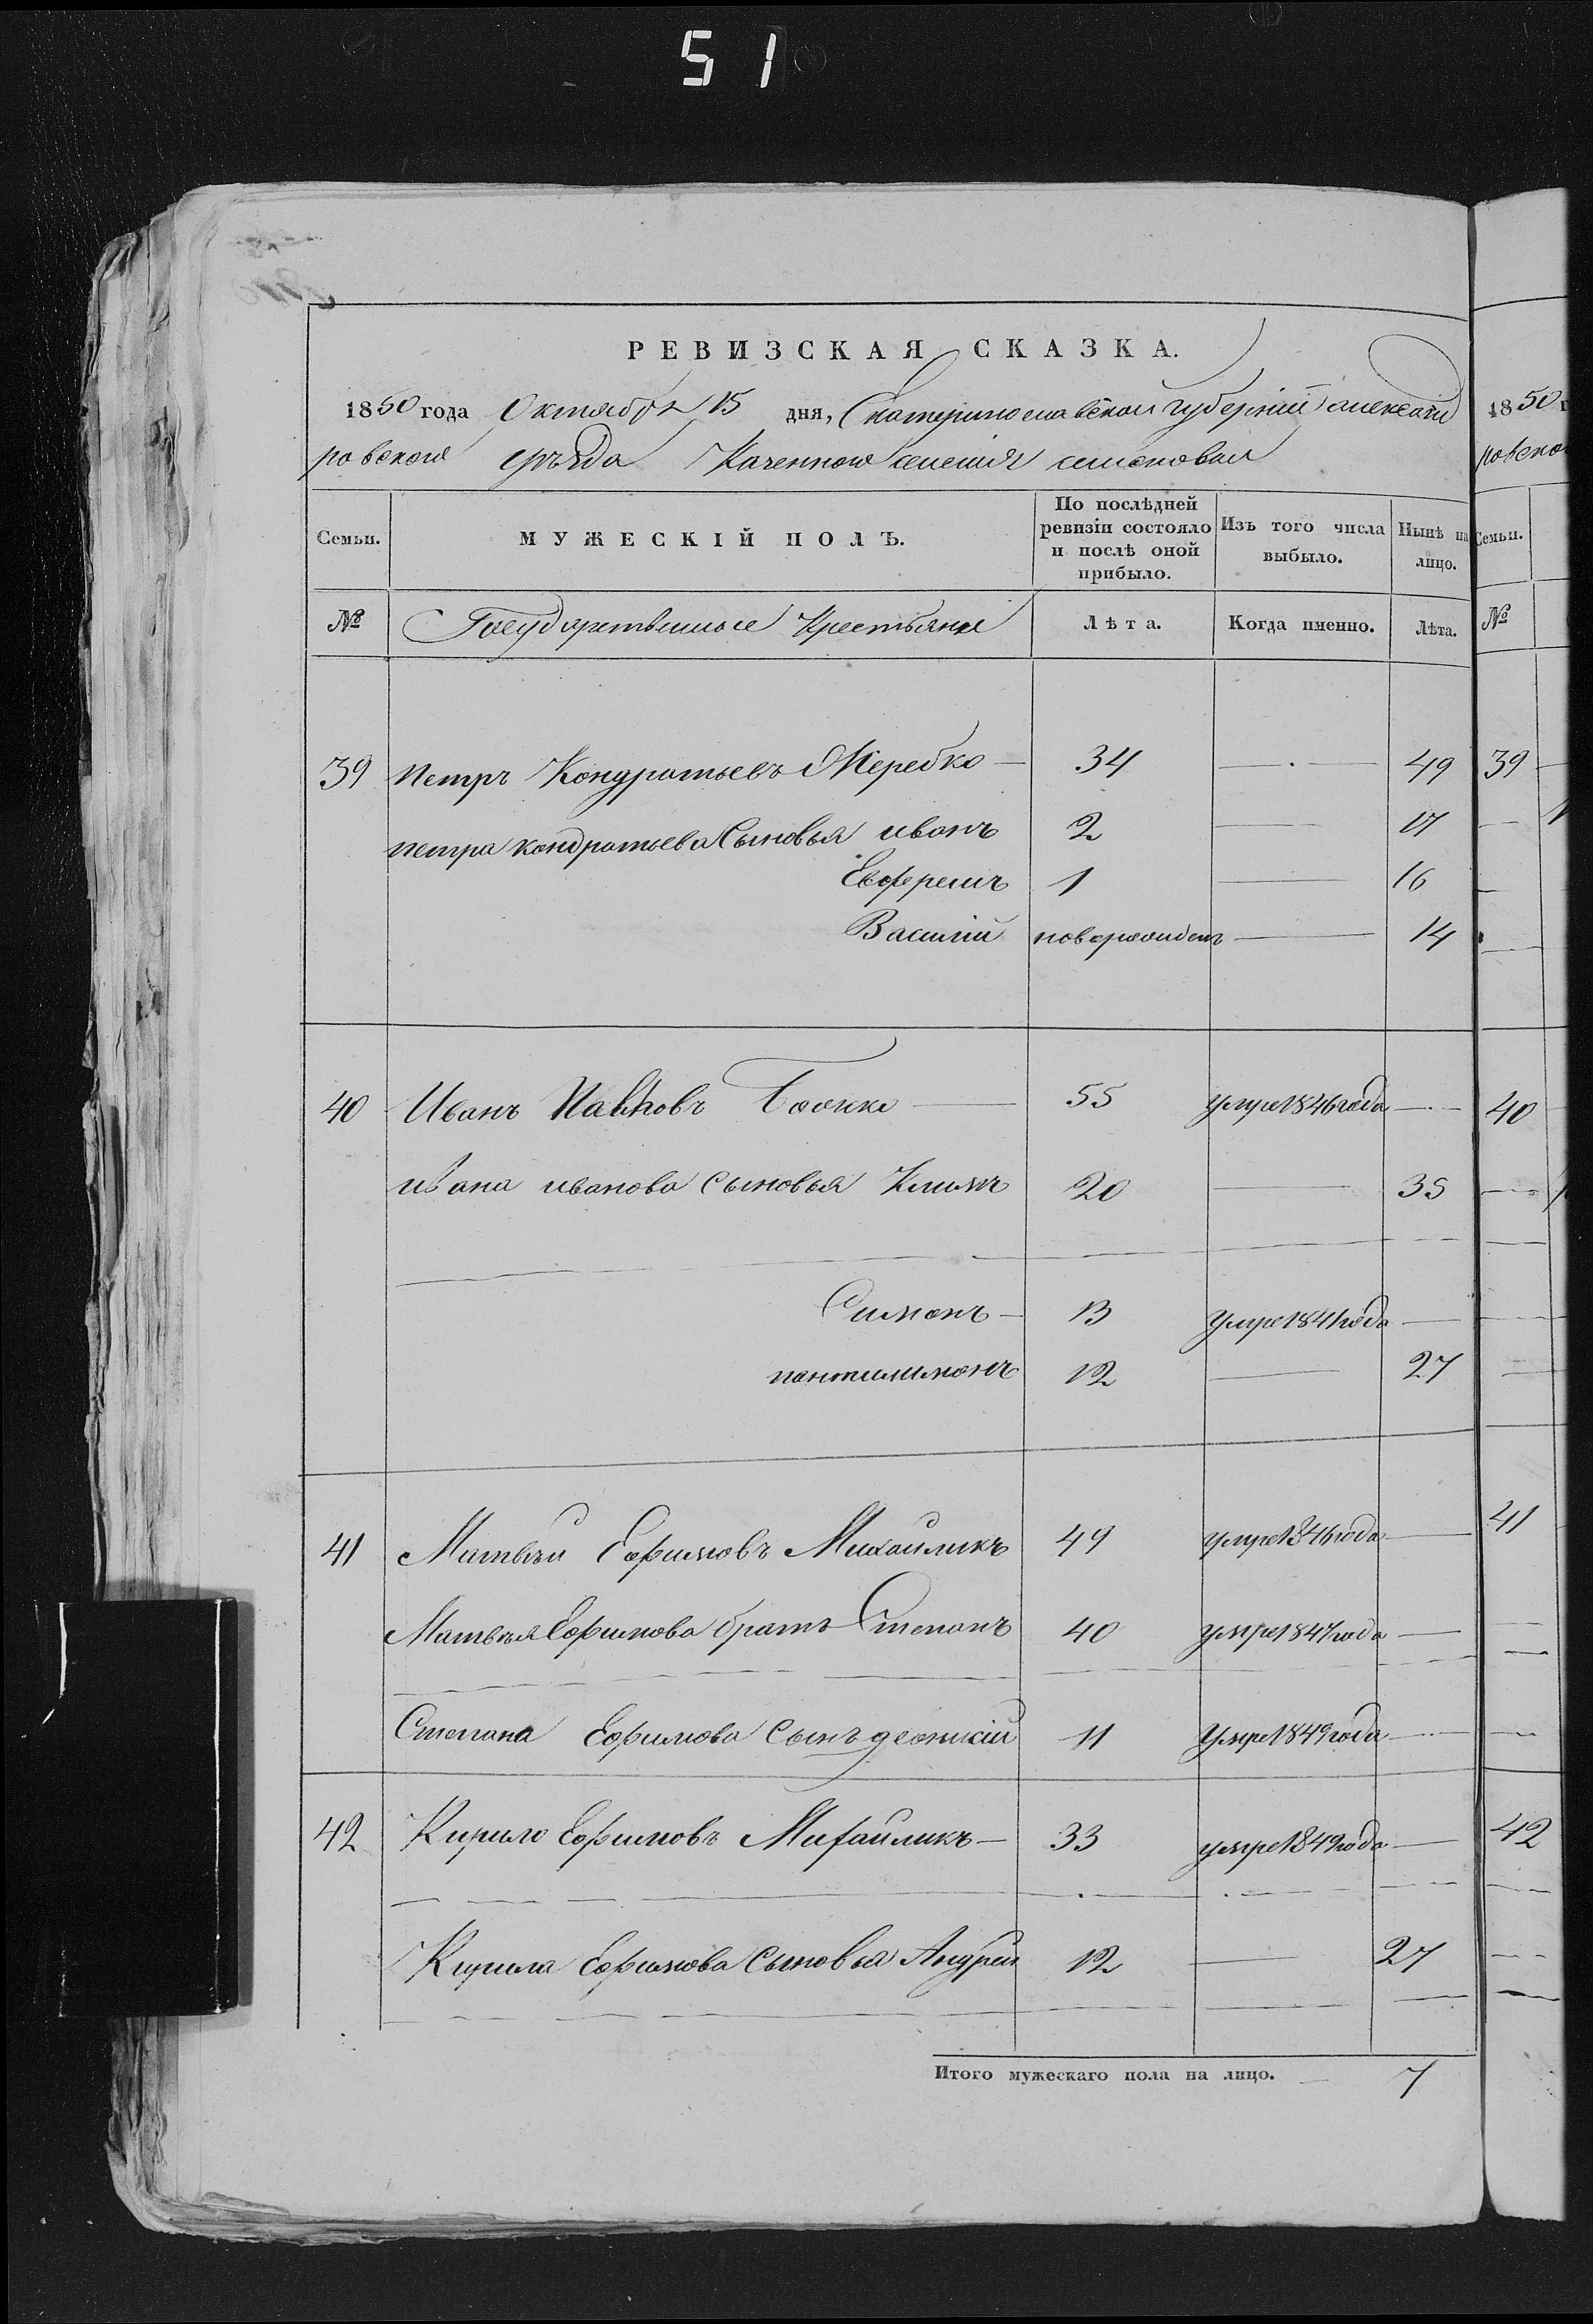 51
РЕВИЗСКАЯ СКАЗКА.
1850 года Октября 15 дня, Екатеринославской губерніи александ
ровского уѣзда Казенного селенія
Семьи. МУЖЕСКІЙ ПОЛЪ. По послѣдней ревизіи состояло и послѣ оной прибыло. Изъ того числа выбыло. Нынѣ на лицо.
№ Государственные Крестьяне Лѣта. Когда именно. Лѣта.
39 Петръ Кондратьевъ 34 — 49
петра кондратьева Сыновья иванъ 2 — 17
Ефремъ 1 — 16
Василій — 14
40 Иванъ 55 умре 1846 года —
ивана иванова сыновья Климъ 20 — 35
Симонъ — 13 Умре 1841 года —
пантилимонъ 12 — 27
41 Матвѣй Ефимовъ Михайликъ 49 умре 1846 года —
Матвѣя Ефимова братъ Степанъ 40 умре 1847 года —
Степана Ефимова Сынъ 11 Умре 1849 года —
42 Кирило Ефимовъ Михайликъ — 33 умре 1849 года —
Кирила Ефимова Сыновья Андрей 12 — 27
Итого мужескаго пола на лицо. — 7
1850 г
ровско
Семьи.
№
39
40
41
42